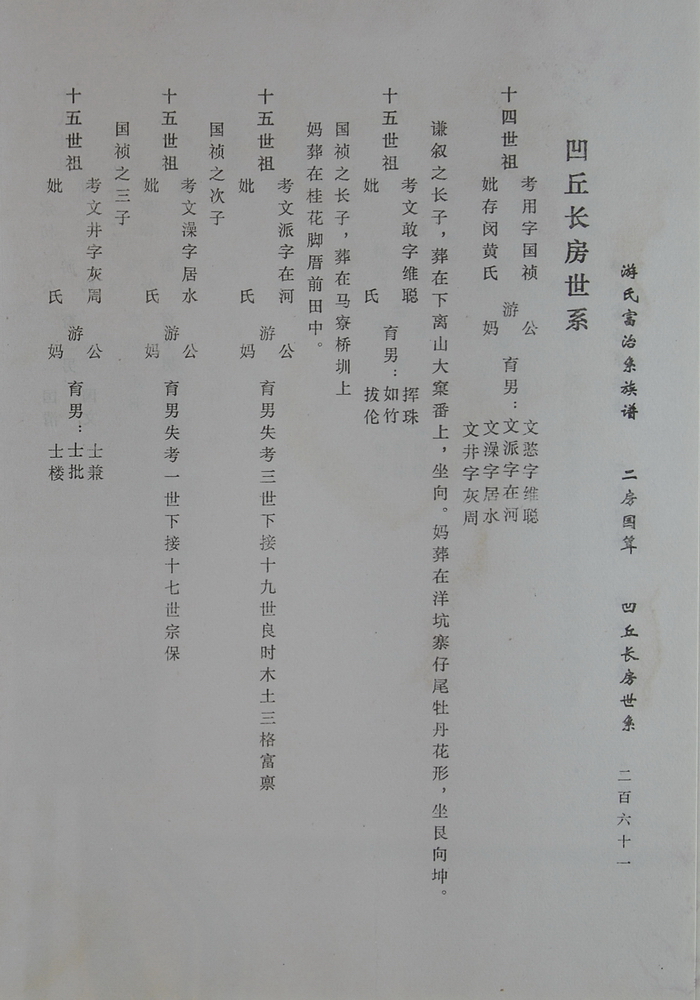 游氏富治系族谱 二房国算 凹丘长房世系 二百六十一
凹丘长房世系
十四世祖
考用字国祯 公
妣存闵黄氏 妈
游
育男：
文憨字维聪
文派字在河
文澡字居水
文井字灰周
谦叙之长子，葬在下离山大窠番上，坐向。妈葬在洋坑寨仔尾牡丹花形，坐艮向坤。
十五世祖
考文敢字维聪
妣 氏
育男：
挥珠
如竹
拔伦
国祯之长子，葬在马寮桥圳上
妈葬在桂花脚厝前田中。
十五世祖
考文派字在河 公
妣 氏 妈
游
育男失考三世下接十九世良时木土三格富禀
国祯之次子
十五世祖
考文澡字居水 公
妣 氏 妈
游
育男失考一世下接十七世宗保
国祯之三子
十五世祖
考文井字灰周 公
妣 氏 妈
游
育男：
士兼
士批
士楼